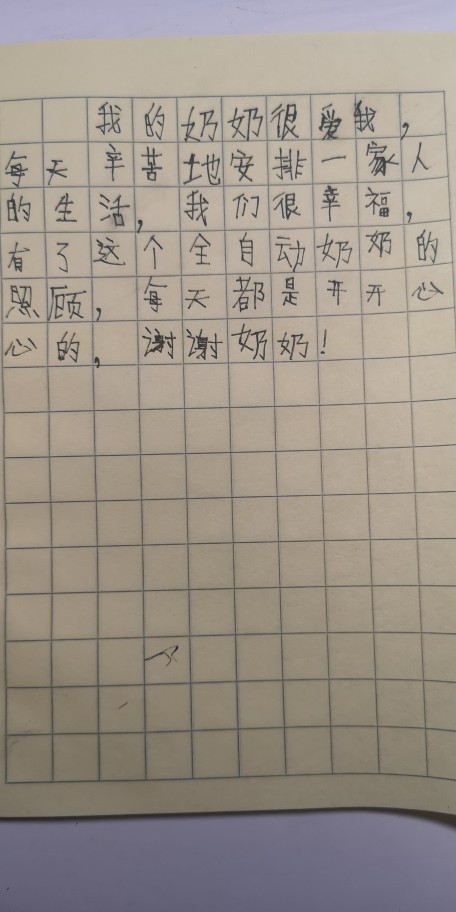 我的奶奶很爱我，
每天辛苦地安排一家人
的生活，我们很幸福，
有了这个全自动奶奶的
照顾，每天都是开开心
心的，谢谢奶奶！